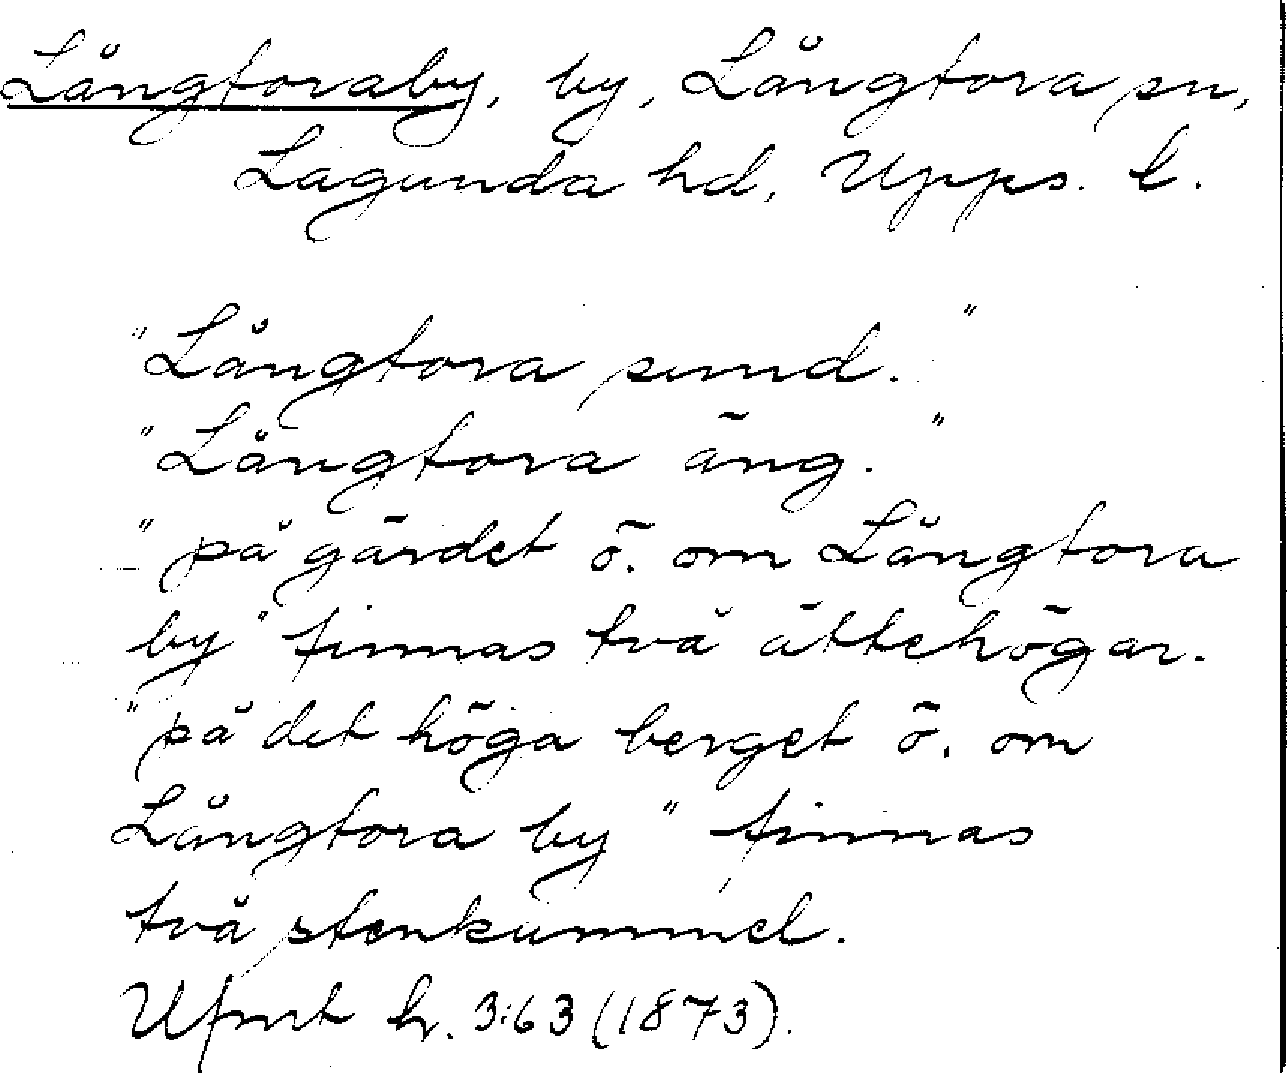 Långtoraby, by, Långtora sn,
Lagunda hd, Upps. l.
"Långtora sund."
"Långtora äng."
"på gärdet ö. om Långtora
by" finnas två ättehögar.
"på det höga berget ö. om
Långtora by" finnas
två stenkummel.
Ufmt h. 3:63 (1873).